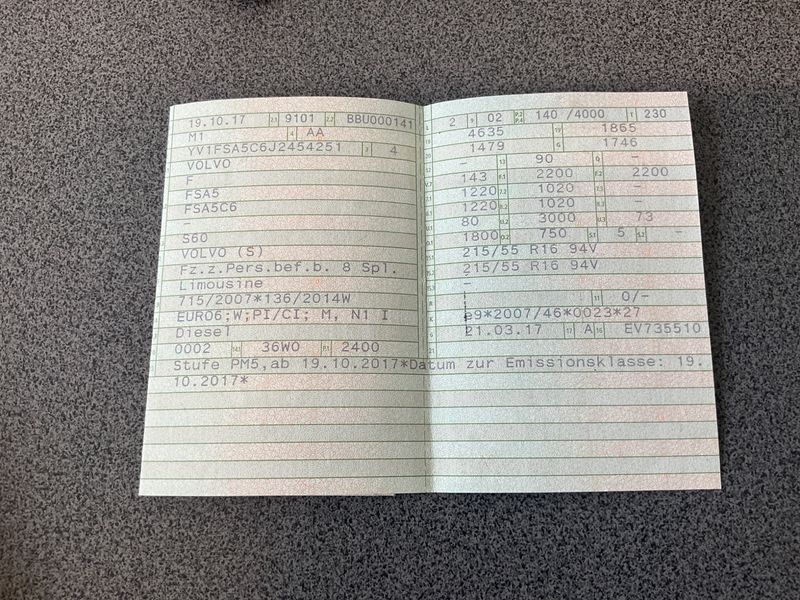 19.10.17 2.1 9101 2.2 BBU000141
M1 4 AA
YV1FSA5C6J2454251 3 4
VOLVO
F
FSA5
FSA5C6
-
S60
VOLVO (S)
Fz.z.Pers.bef.b. 8 Spl.
Limousine
715/2007*136/2014W
EURO6;W;PI/CI; M, N1 I
Diesel
0002 14.1 36W0 P.1 2400
Stufe PM5,ab 19.10.2017*Datum zur Emissionsklasse: 19.
10.2017*
L 2 9 02 P.2 P.4 140 /4000 T 230
18 4635 19 1865
20 1479 G 1746
12 - 13 90 Q -
V.7 143 F.1 2200 F.2 2200
7.1 1220 7.2 1020 7.3 -
8.1 1220 8.2 1020 8.3 -
U.1 80 U.2 3000 U.3 73
O.1 1800 O.2 750 S.1 5 S.2 -
15.1 215/55 R16 94V
15.2 215/55 R16 94V
15.3 -
R 11 0/-
K e9*2007/46*0023*27
6 21.03.17 17 A 16 EV735510
21